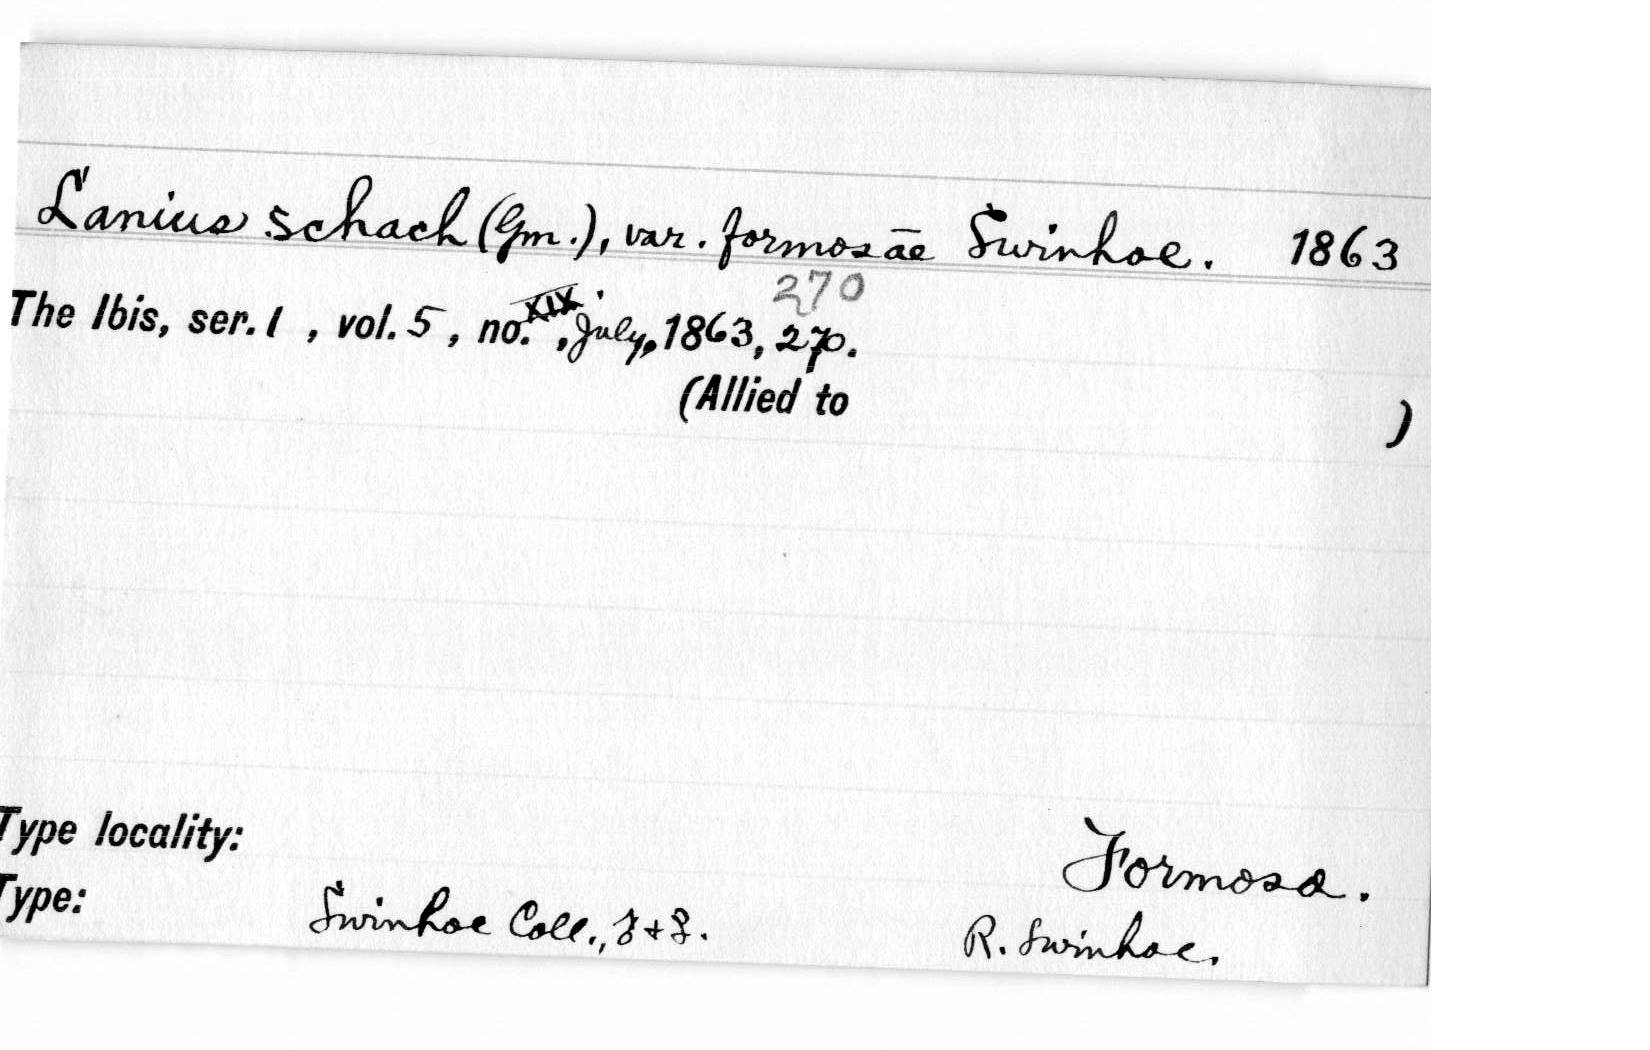 Lanius schach (Gm.), var. formosae Swinhoe. 1863
270
The Ibis, ser. 1, vol. 5, no. XIX, July, 1863, 270.
(Allied to )
Type locality: Formosa.
Type: Swinhoe Coll., R. Swinhoe.